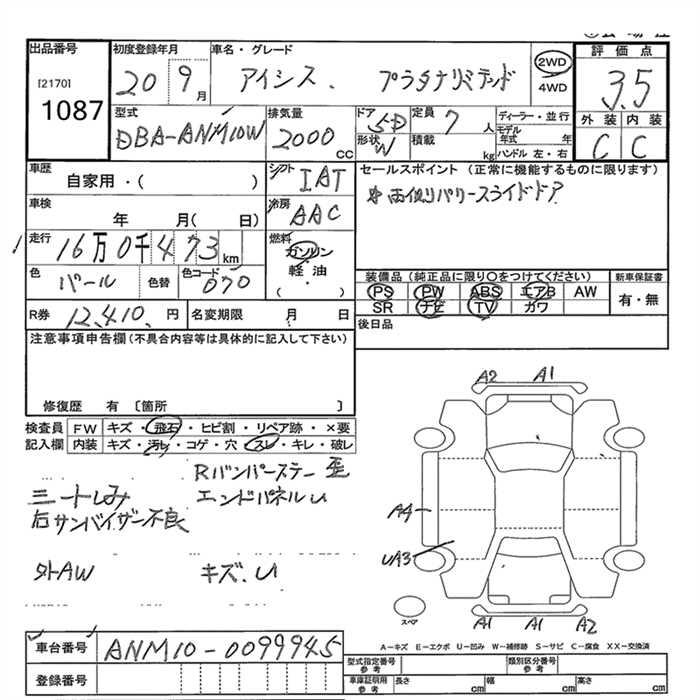 出品番号
[2170]
1087
初度登録年月
20 9月
車名・グレード
アイシス. プラタナリミテッド
2WD
4WD
評価点
3.5
外装 内装
C C
型式
DBA-ANM10W
排気量
2000 CC
ドア
形状
5D
W
定員
7人
積載
kg
ディーラー・並行
モデル年式 年
ハンドル 左・右
車歴
自家用・( )
シフト
IAT
冷房
AAC
車検
年 月( 日)
走行
16万0千473 km
燃料
ガソリン
軽・油
・
( )
色
パール
色替
色コード
070
R券
12,410. 円
名変期限
月 日
セールスポイント (正常に機能するものに限ります)
両側パワースライドドア
装備品 (純正品に限り○をつけてください)
PS PW ABS エアB AW
SR ナビ TV カワ
新車保証書
有・無
後日品
注意事項申告欄(不具合内容等は具体的に記入して下さい)
修復歴 有 〔箇所 〕
検査員
記入欄
FW キズ・飛石・ヒビ割・リペア跡・×要
内装 キズ・汚レ・コゲ・穴・スレ・キレ・破レ
Rバンパーステー 歪
シートしみ エンドパネルU
右サンバイザー不良
外AW キズ.U
A2 A1
A4
UA3
スペア
A1 A1 A2
A−キズ E−エクボ U−凹み W−補修跡 S−サビ C−腐食 XX−交換済
車台番号
ANM10-0099945
登録番号
型式指定番号
参考
類別区分番号
参考
車庫証明用
参考
長さ cm 幅 cm 高さ cm